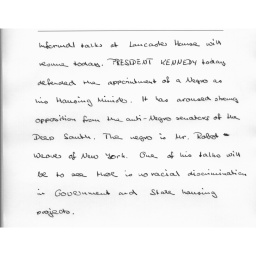 Informal talks at Lancaster House will
resume today. PRESIDENT KENNEDY today
defended the appointment of a Negro as
his Housing Minister. It has aroused strong
opposition from the anti-Negro senators of the
Deep South. The negro is Mr. Robert
Weaver of New York. One of his tasks will
be to see there is no racial discrimination
in Government and State housing
projects.